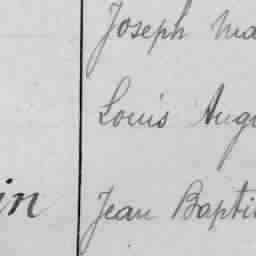 Joseph Ma
Louis Augu
in Jean Bapti